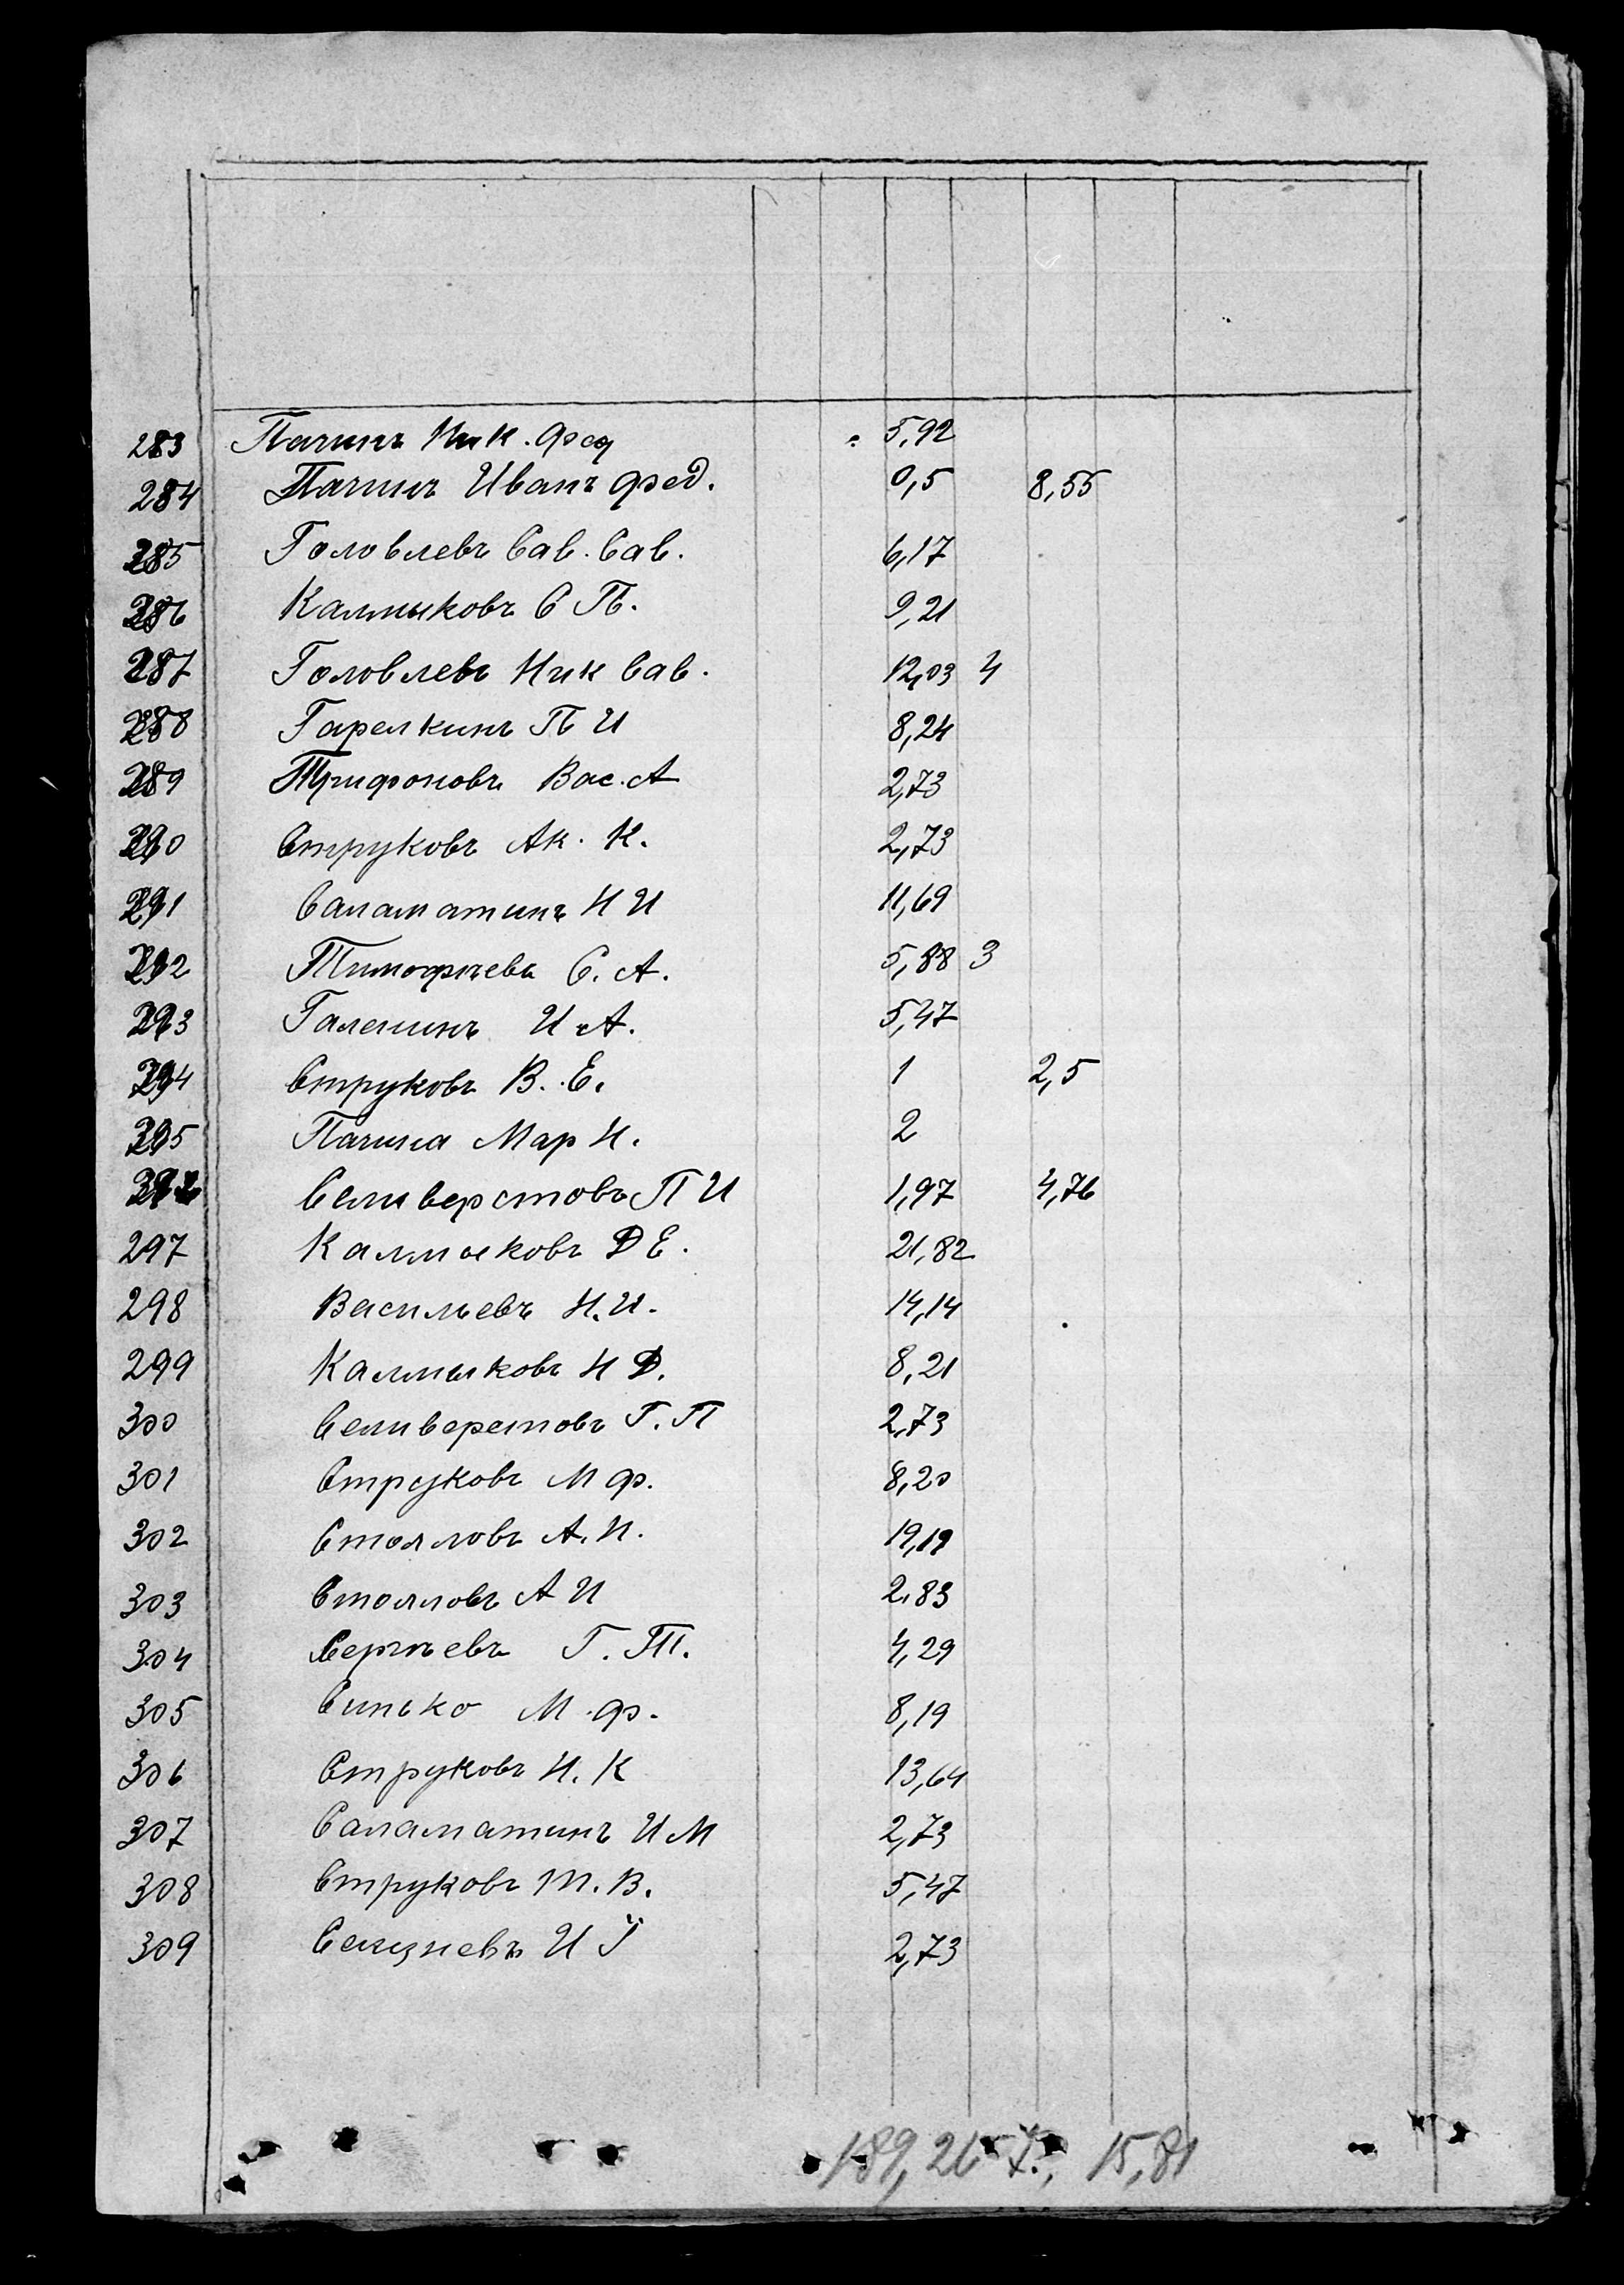 283 Пачинъ Ник. Фед 5,92
284 Пачинъ Иванъ Фед. 0,5 8,55
285 Головлевъ Сав. Сав. 6,17
286 Калмыковъ С П. 9,21
287 Головлевъ Ник Сав. 12,03 4
288 Гарелкинъ П И 8,24
289 Трифоновъ Вас. А 2,73
290 Струковъ Ак. К. 2,73
291 Саламатинъ Н И 11,69
292 Тимофѣевъ С. А. 5,88 3
293 Галенинъ И А. 5,47
294 Струковъ В. Е. 1 2,5
295 Пачина Мар Н. 2
296 Селиверстовъ П И 1,97 4,76
297 Калмыковъ Д Е. 21,82
298 Васильевъ Н. И. 14,14
299 Калмыковъ Н Д. 8,21
300 Селиверстовъ Г. П 2,73
301 Струковъ М Ф. 8,20
302 Стояловъ А. Н. 19,19
303 Стояловъ А И 2,83
304 Сергѣевъ Г. Т. 4,29
305 Синько М. Ф. 8,19
306 Струковъ Н. К 13,64
307 Саламатинъ И М 2,73
308 Струковъ М. В. 5,47
309 И Г 2,73
189,26 7., 15,81